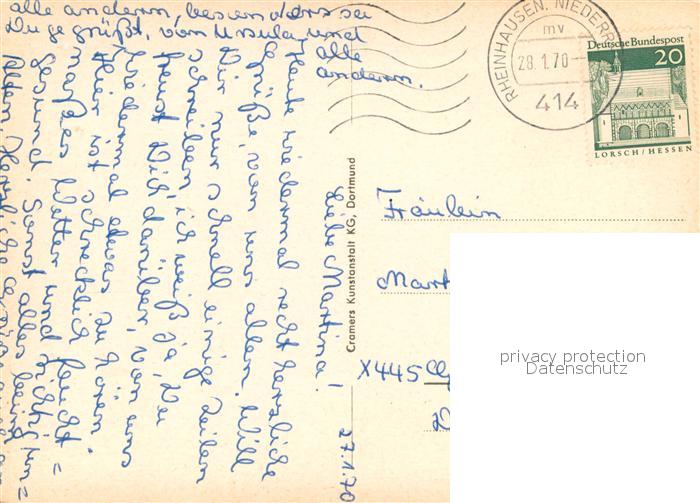 27.1.70
Liebe Martina!
Heute wiedermal recht herzliche
Grüße, von uns allen. Will
Dir nur schnell einige Zeilen
schreiben, ich weiß ja, Du
freust Dich darüber, von uns
wiedermal etwas zu hören.
Hier ist schrecklich feucht=
naßes Wetter und richtig un=
gesund. Sonst alles beim
Alten. Herzliche Grüße
alle anderen, besonders sei
Du gegrüßt, von Ursula und
alle
anderen.
Cramers Kunstanstalt KG, Dortmund
RHEINHAUSEN, NIEDERR
mv
28.1.70
414
Deutsche Bundespost
20
LORSCH/HESSEN
Fräulein
Mart
X445
privacy protection
Datenschutz